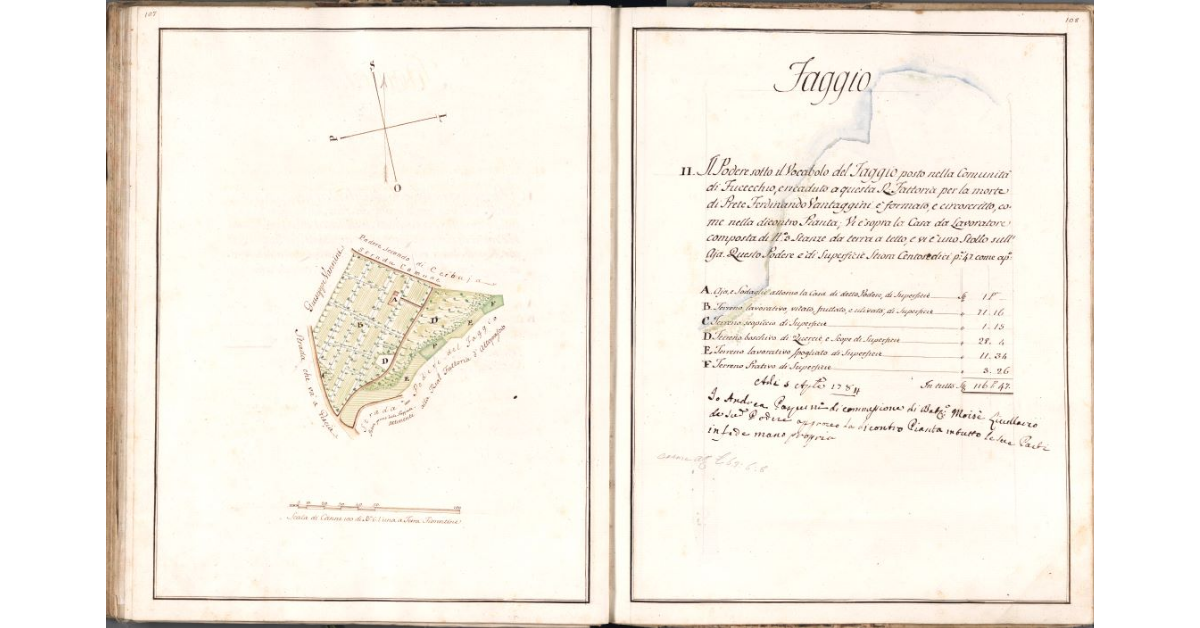 108
S
P
L
O
Podere secondo di Cerbaja
Strada Comune
Giuseppe Vannini
A
B
D
E
F
D
E
Strada che va a
Podere del Faggio
Strada
della Real Fattoria d'Altopascio
Scala di Canne 100 di B.a 5 l'una a Terra Fiorentina
108
Faggio
II. Il Podere sotto il Vocabolo del Faggio posto nella Comunità
di Fucecchio, e ricaduto a questa R. Fattoria per la morte
di Prete Ferdinando Vantaggini è formato, e circoscritto, co-
me nella dicontro Pianta; Vi è sopra la Casa da Lavoratore
composta di N.o Stanze da terra a tetto, e vi è uno Stallo sull'
Aja. Questo Podere è di Superficie Stiora Centosedici p. 47. come ap.
A. Aja, e Sodaglie attorno la Casa di detto Podere, di Superficie
B. Terreno lavorativo, vitato, fruttato, e ulivato, di Superficie 71. 16
C. Terreno scopiccio di Superficie 1. 13
D. Terreno boschivo di Quercie, e Scope di Superficie 28. 4
E. Terreno lavorativo spogliato di Superficie 11. 34
F. Terreno Prativo di Superficie 3. 26
In tutto 116. 47.
Io Andrea di commissione di Moisè
de Sud. Podere approvo la dicontro Pianta in tutte le sue Parti
in fede mano propria